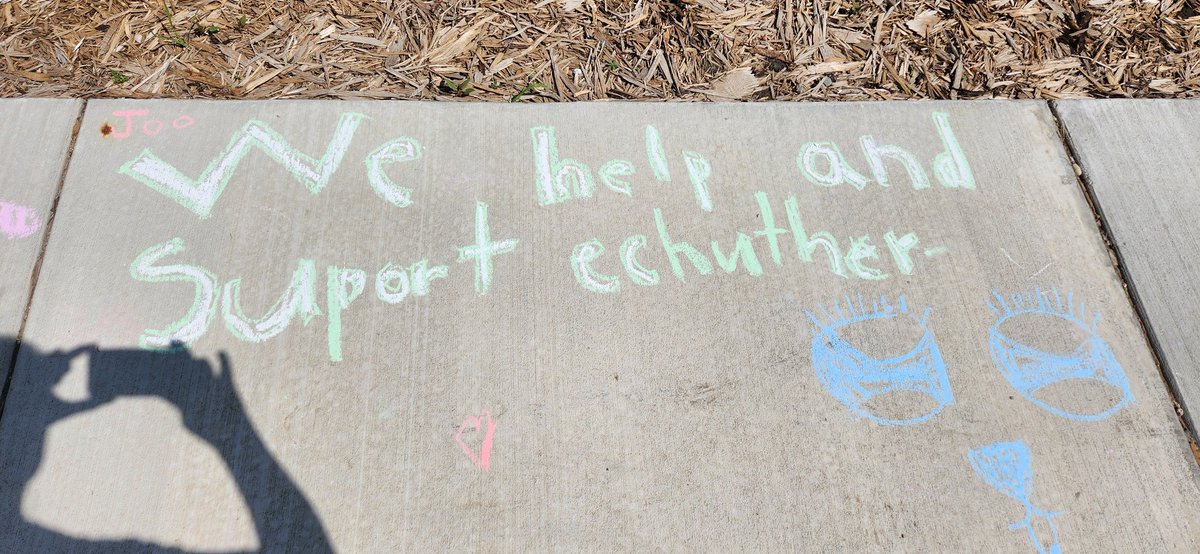 Joo
We help and
Suport echuther-